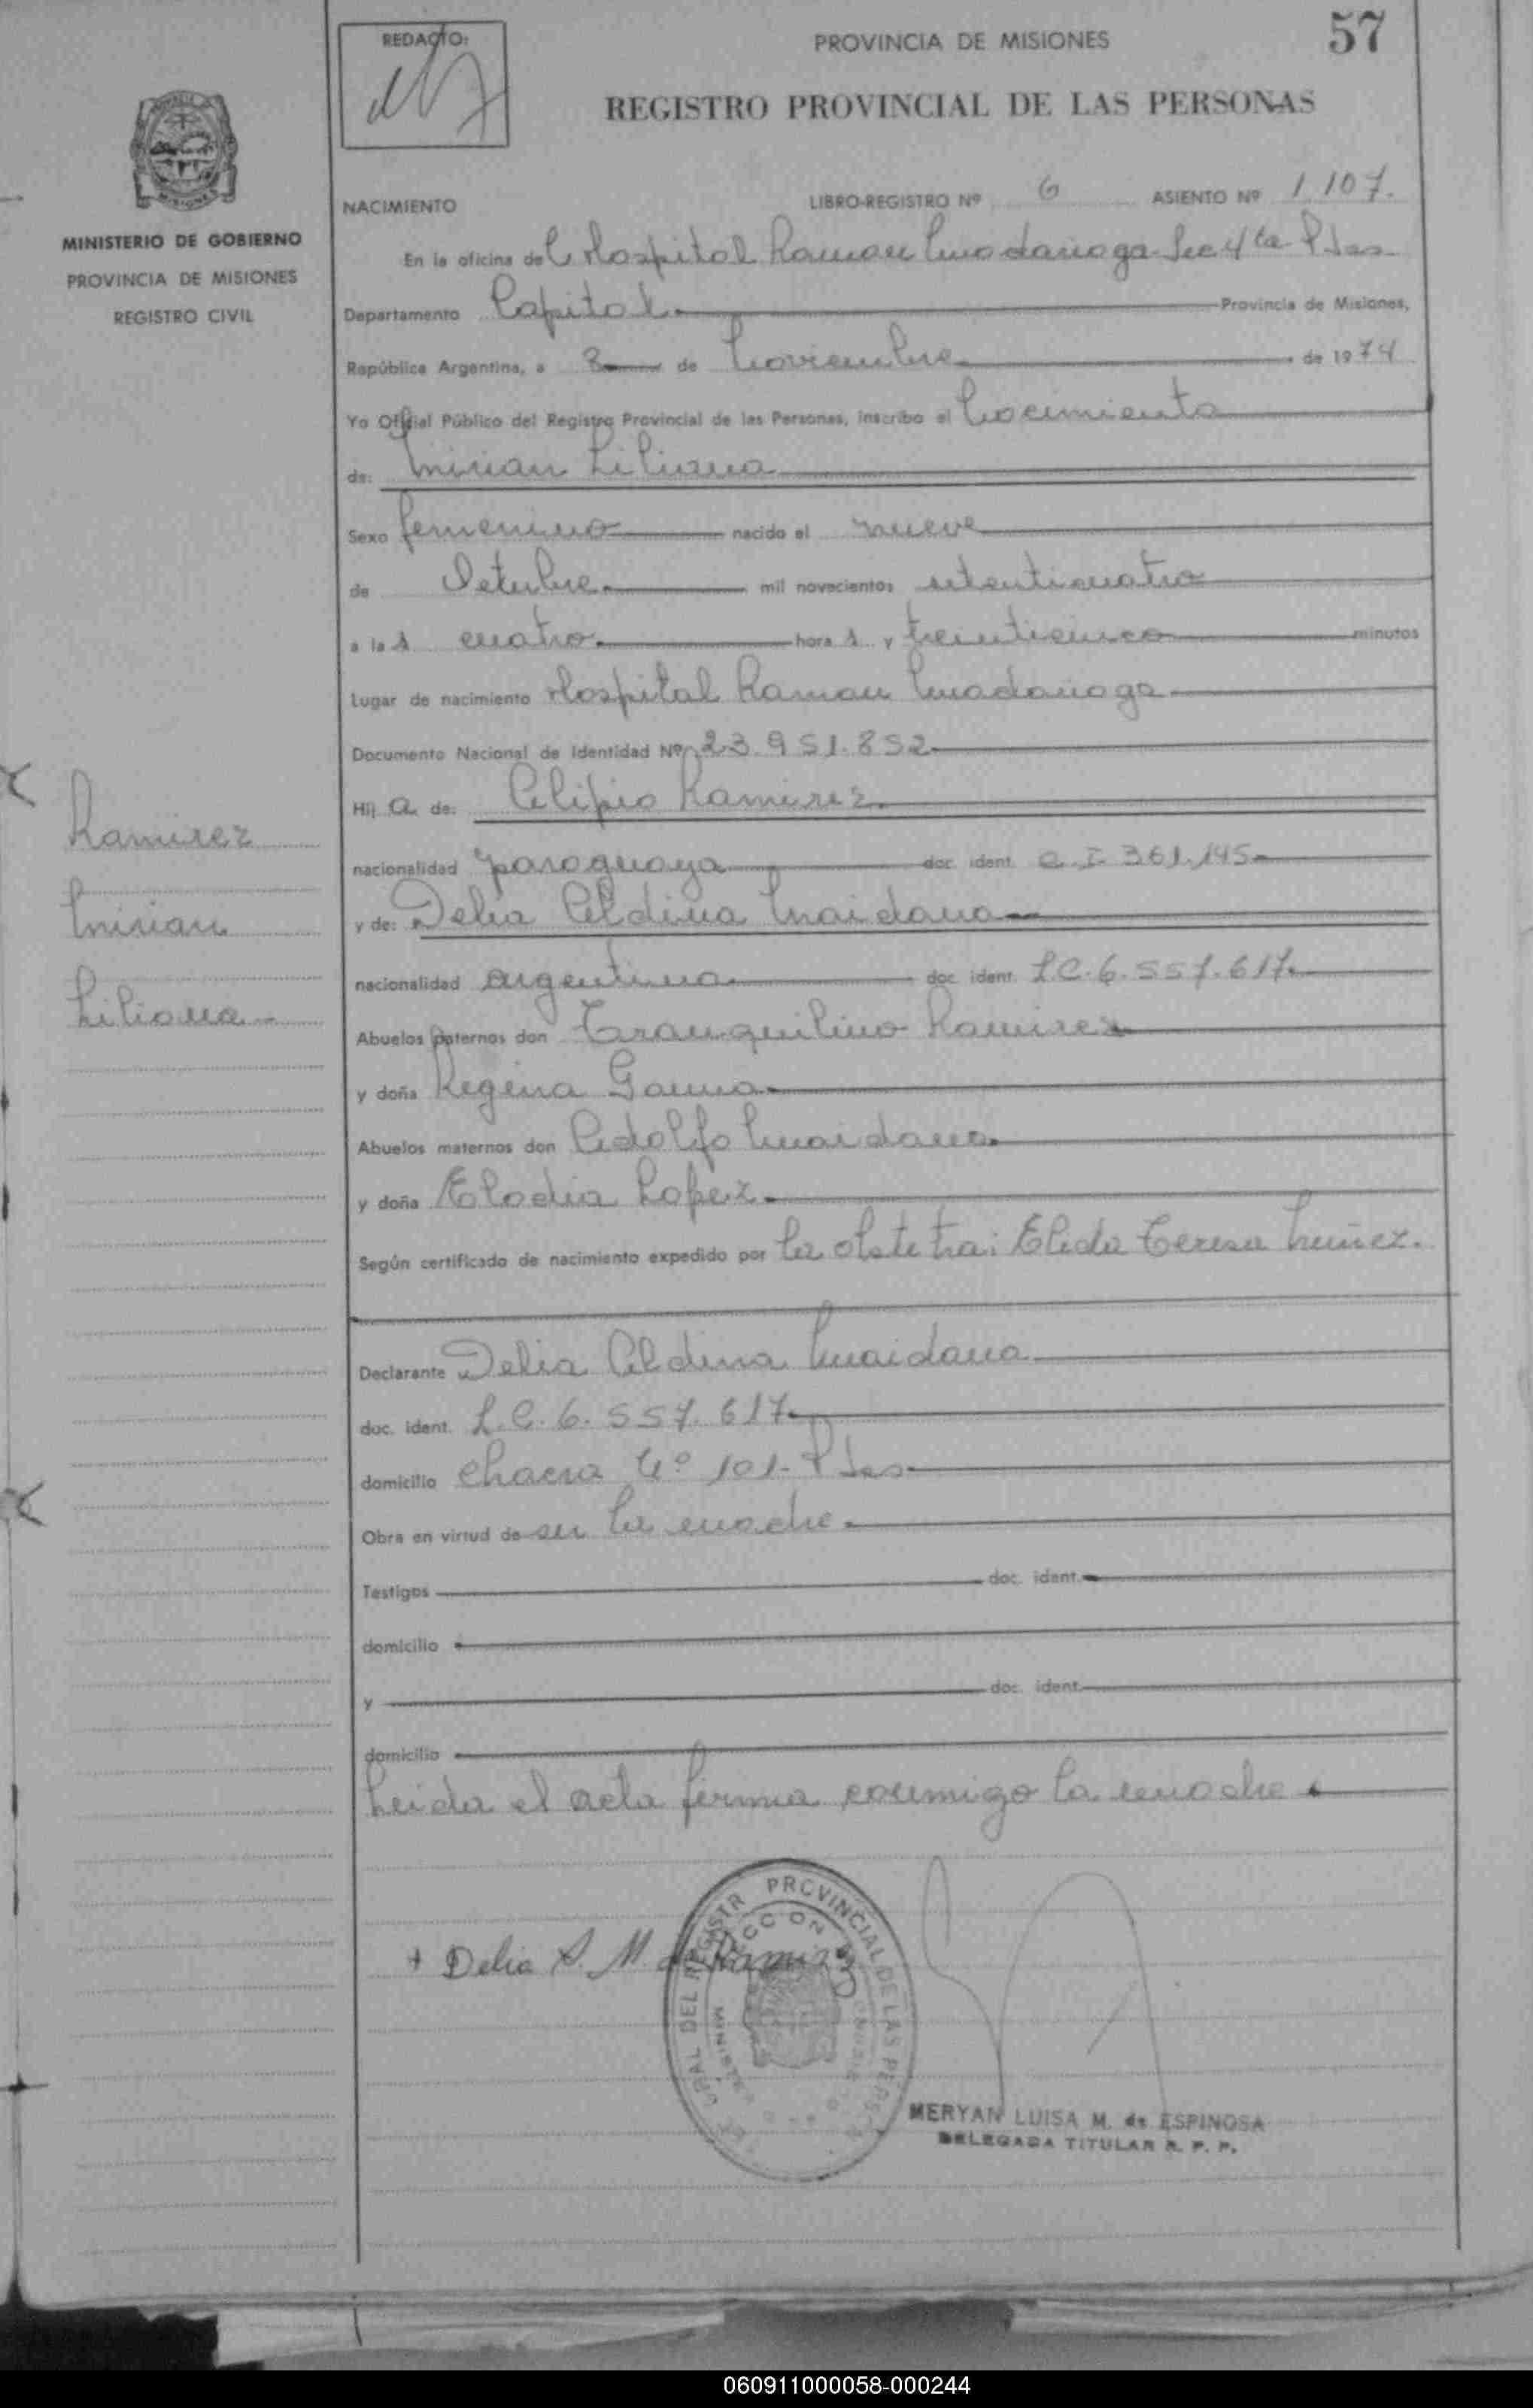 57
REDACTO:
PROVINCIA DE MISIONES
REGISTRO PROVINCIAL DE LAS PERSONAS
NACIMIENTO LIBRO-REGISTRO Nº 6 ASIENTO Nº 1.107.
MINISTERIO DE GOBIERNO
PROVINCIA DE MISIONES
REGISTRO CIVIL
En la oficina del Hospital Ramon Madariaga Sec 4ta Pdas
Departamento Capital Provincia de Misiones,
República Argentina, a 8 de Noviembre de 1974
Yo Oficial Público del Registro Provincial de las Personas, inscribo el Nacimiento
de: Mirian Liliana
Sexo femenino nacido el nueve
de Octubre mil novecientos setenticuatro
a las cuatro horas y treinticinco minutos
Lugar de nacimiento Hospital Ramon Madariaga
Documento Nacional de Identidad Nº 23.951.852
Hija de: Alipio Ramirez
nacionalidad paraguaya doc. ident. C.I 361.145
y de: Delia Aldina Maidana
nacionalidad argentina doc. ident. L.C. 6.557.617
Abuelos paternos don Tranquilino Ramirez
y doña Regina
Abuelos maternos don Adolfo Maidana
y doña Elodia Lopez
Según certificado de nacimiento expedido por la obstetra: Elida Teresa Nuñez.
Declarante Delia Aldina Maidana
doc. ident. L.C. 6.557.617
domicilio Chacra Nº 101- Pdas
Obra en virtud de ser la madre
Testigos doc. ident.
domicilio
y doc. ident.
domicilio
Leida el acta firma conmigo la madre
Ramirez
Mirian
Liliana
+ Delia A. M. de Ramirez
REGISTR PROVINCIAL DE LAS PERS
MERYAN LUISA M. de ESPINOSA
DELEGADA TITULAR R. P. P.
060911000058-000244